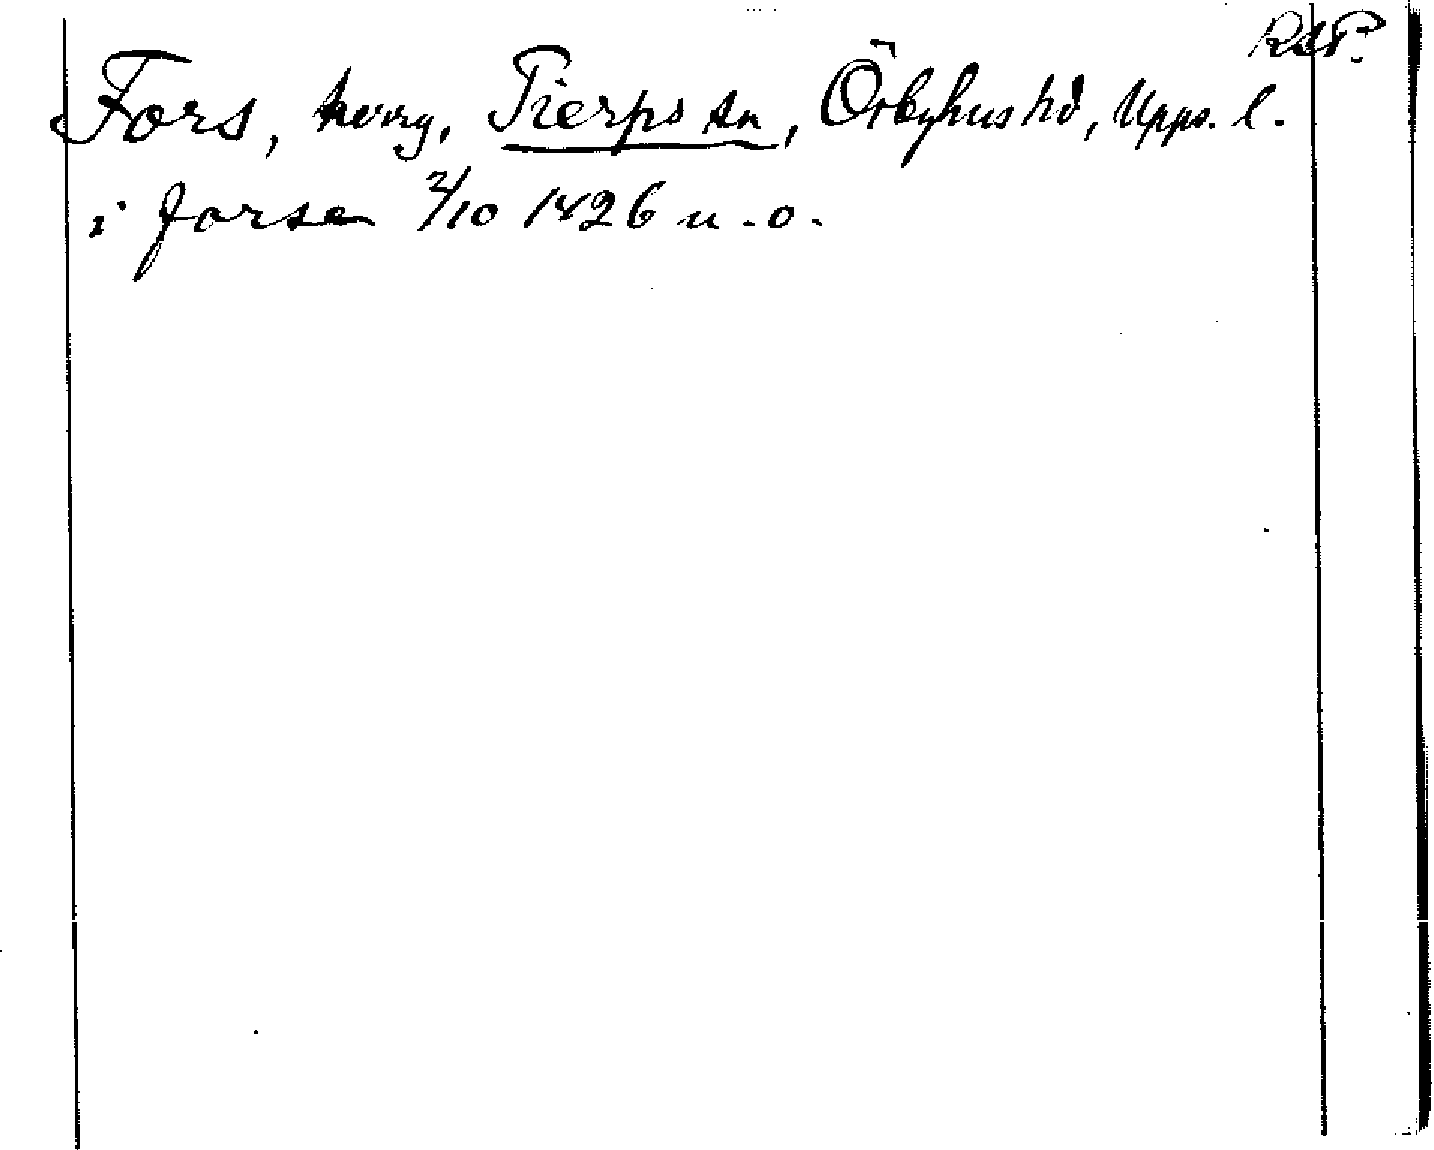 RAP.
Fors, herrg, Tierps sn, Örbyhus hd, Upps. l.
i forsa 2/10 1426 u.o.